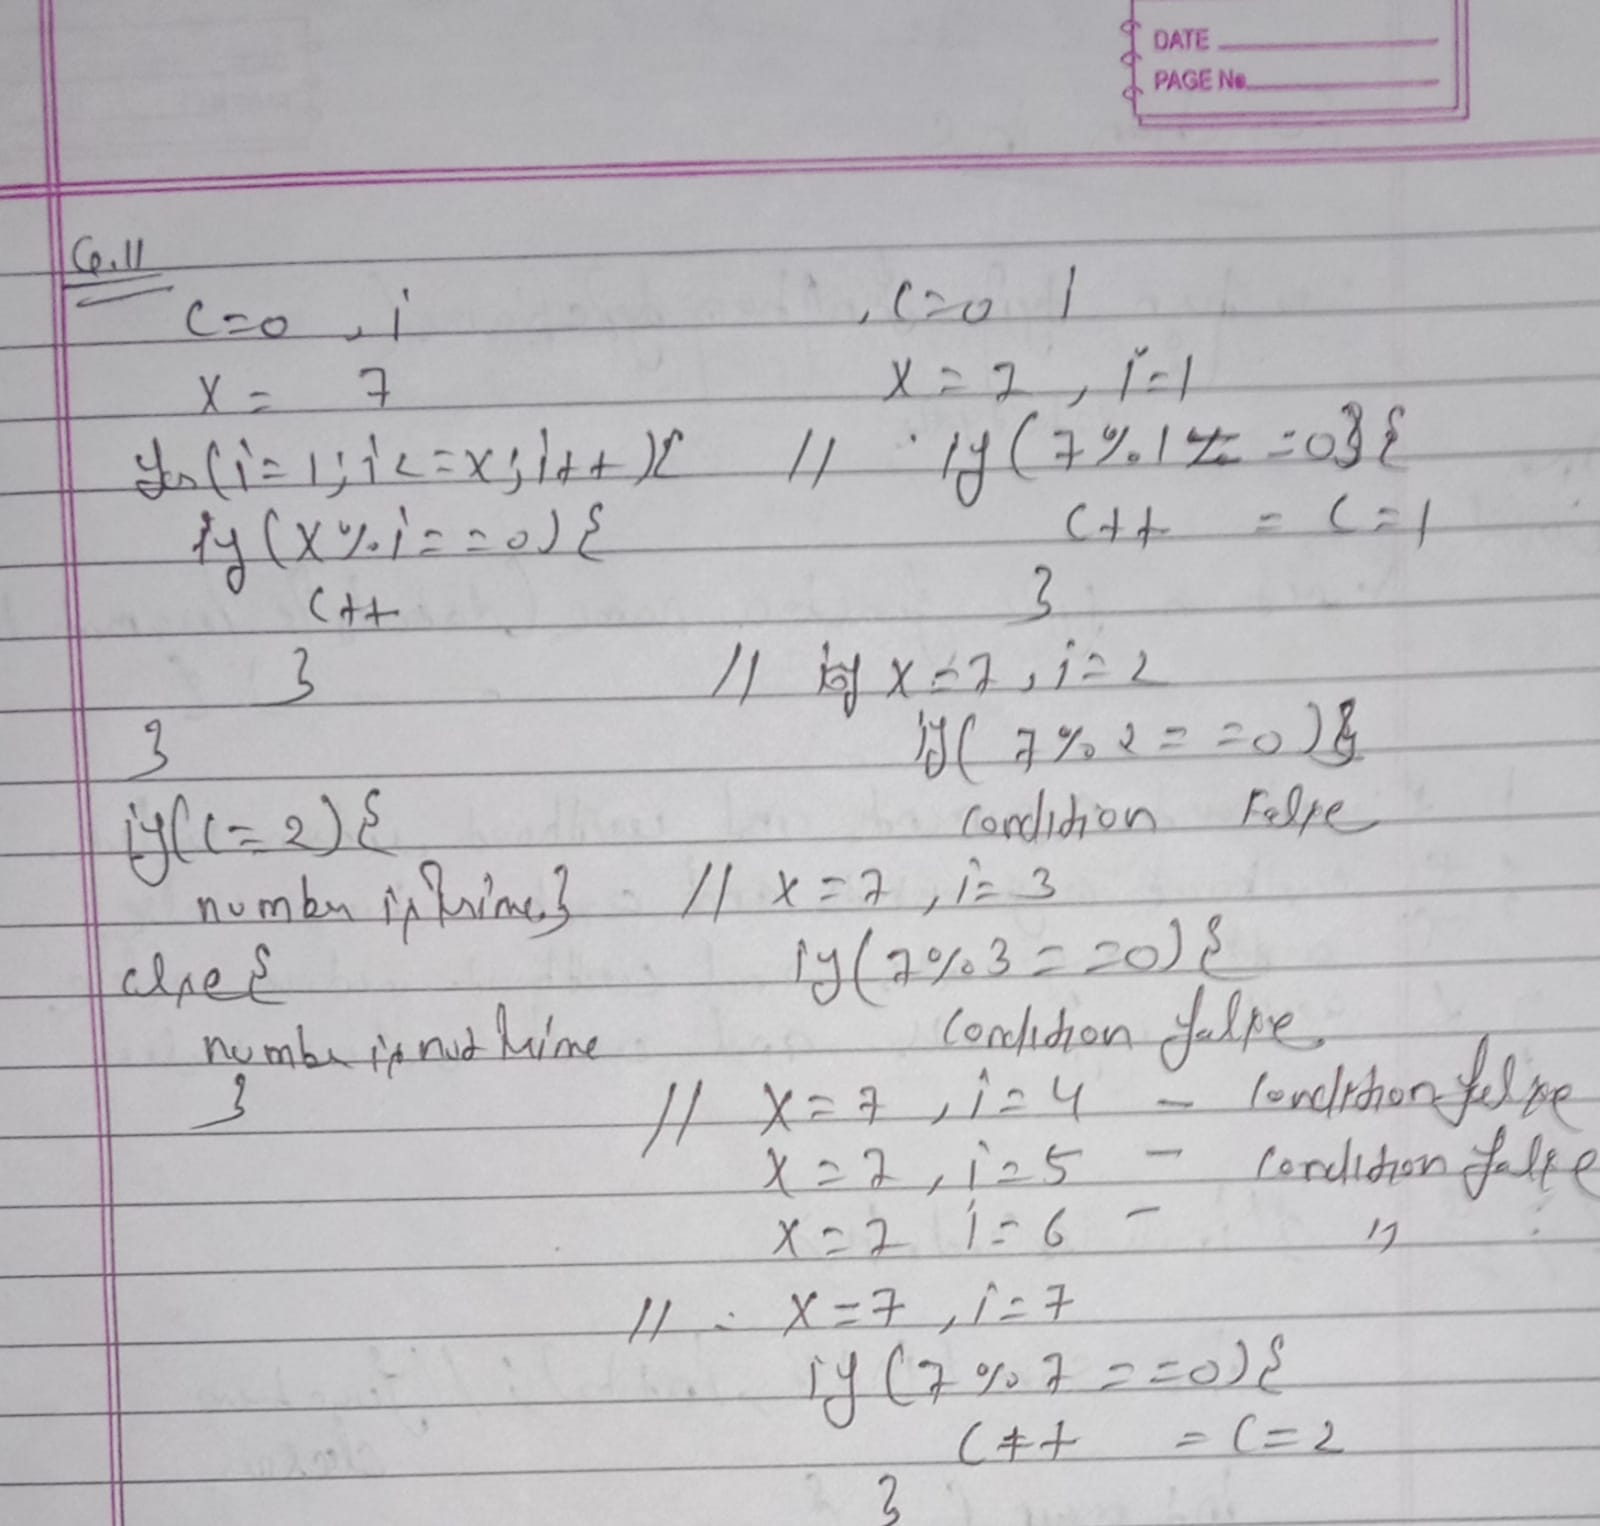 DATE
PAGE No.
Q.11
c=0 , i
x = 7
for(i=1; i<=x; i++){
if(x%i==0){
c++
}
}
if(c=2){
number is Prime}
else{
number is not Prime
}
, c=0
x=7 , i=1
// if(7%1 ==0){
c++ = c=1
}
// x=7, i=2
if(7%2==0){
condition False
// x=7, i=3
if(7%3==0){
condition false
// x=7, i=4 - condition false
x=7, i=5 - condition false
x=7 i=6 - "
// x=7, i=7
if(7%7==0){
c++ = c=2
}